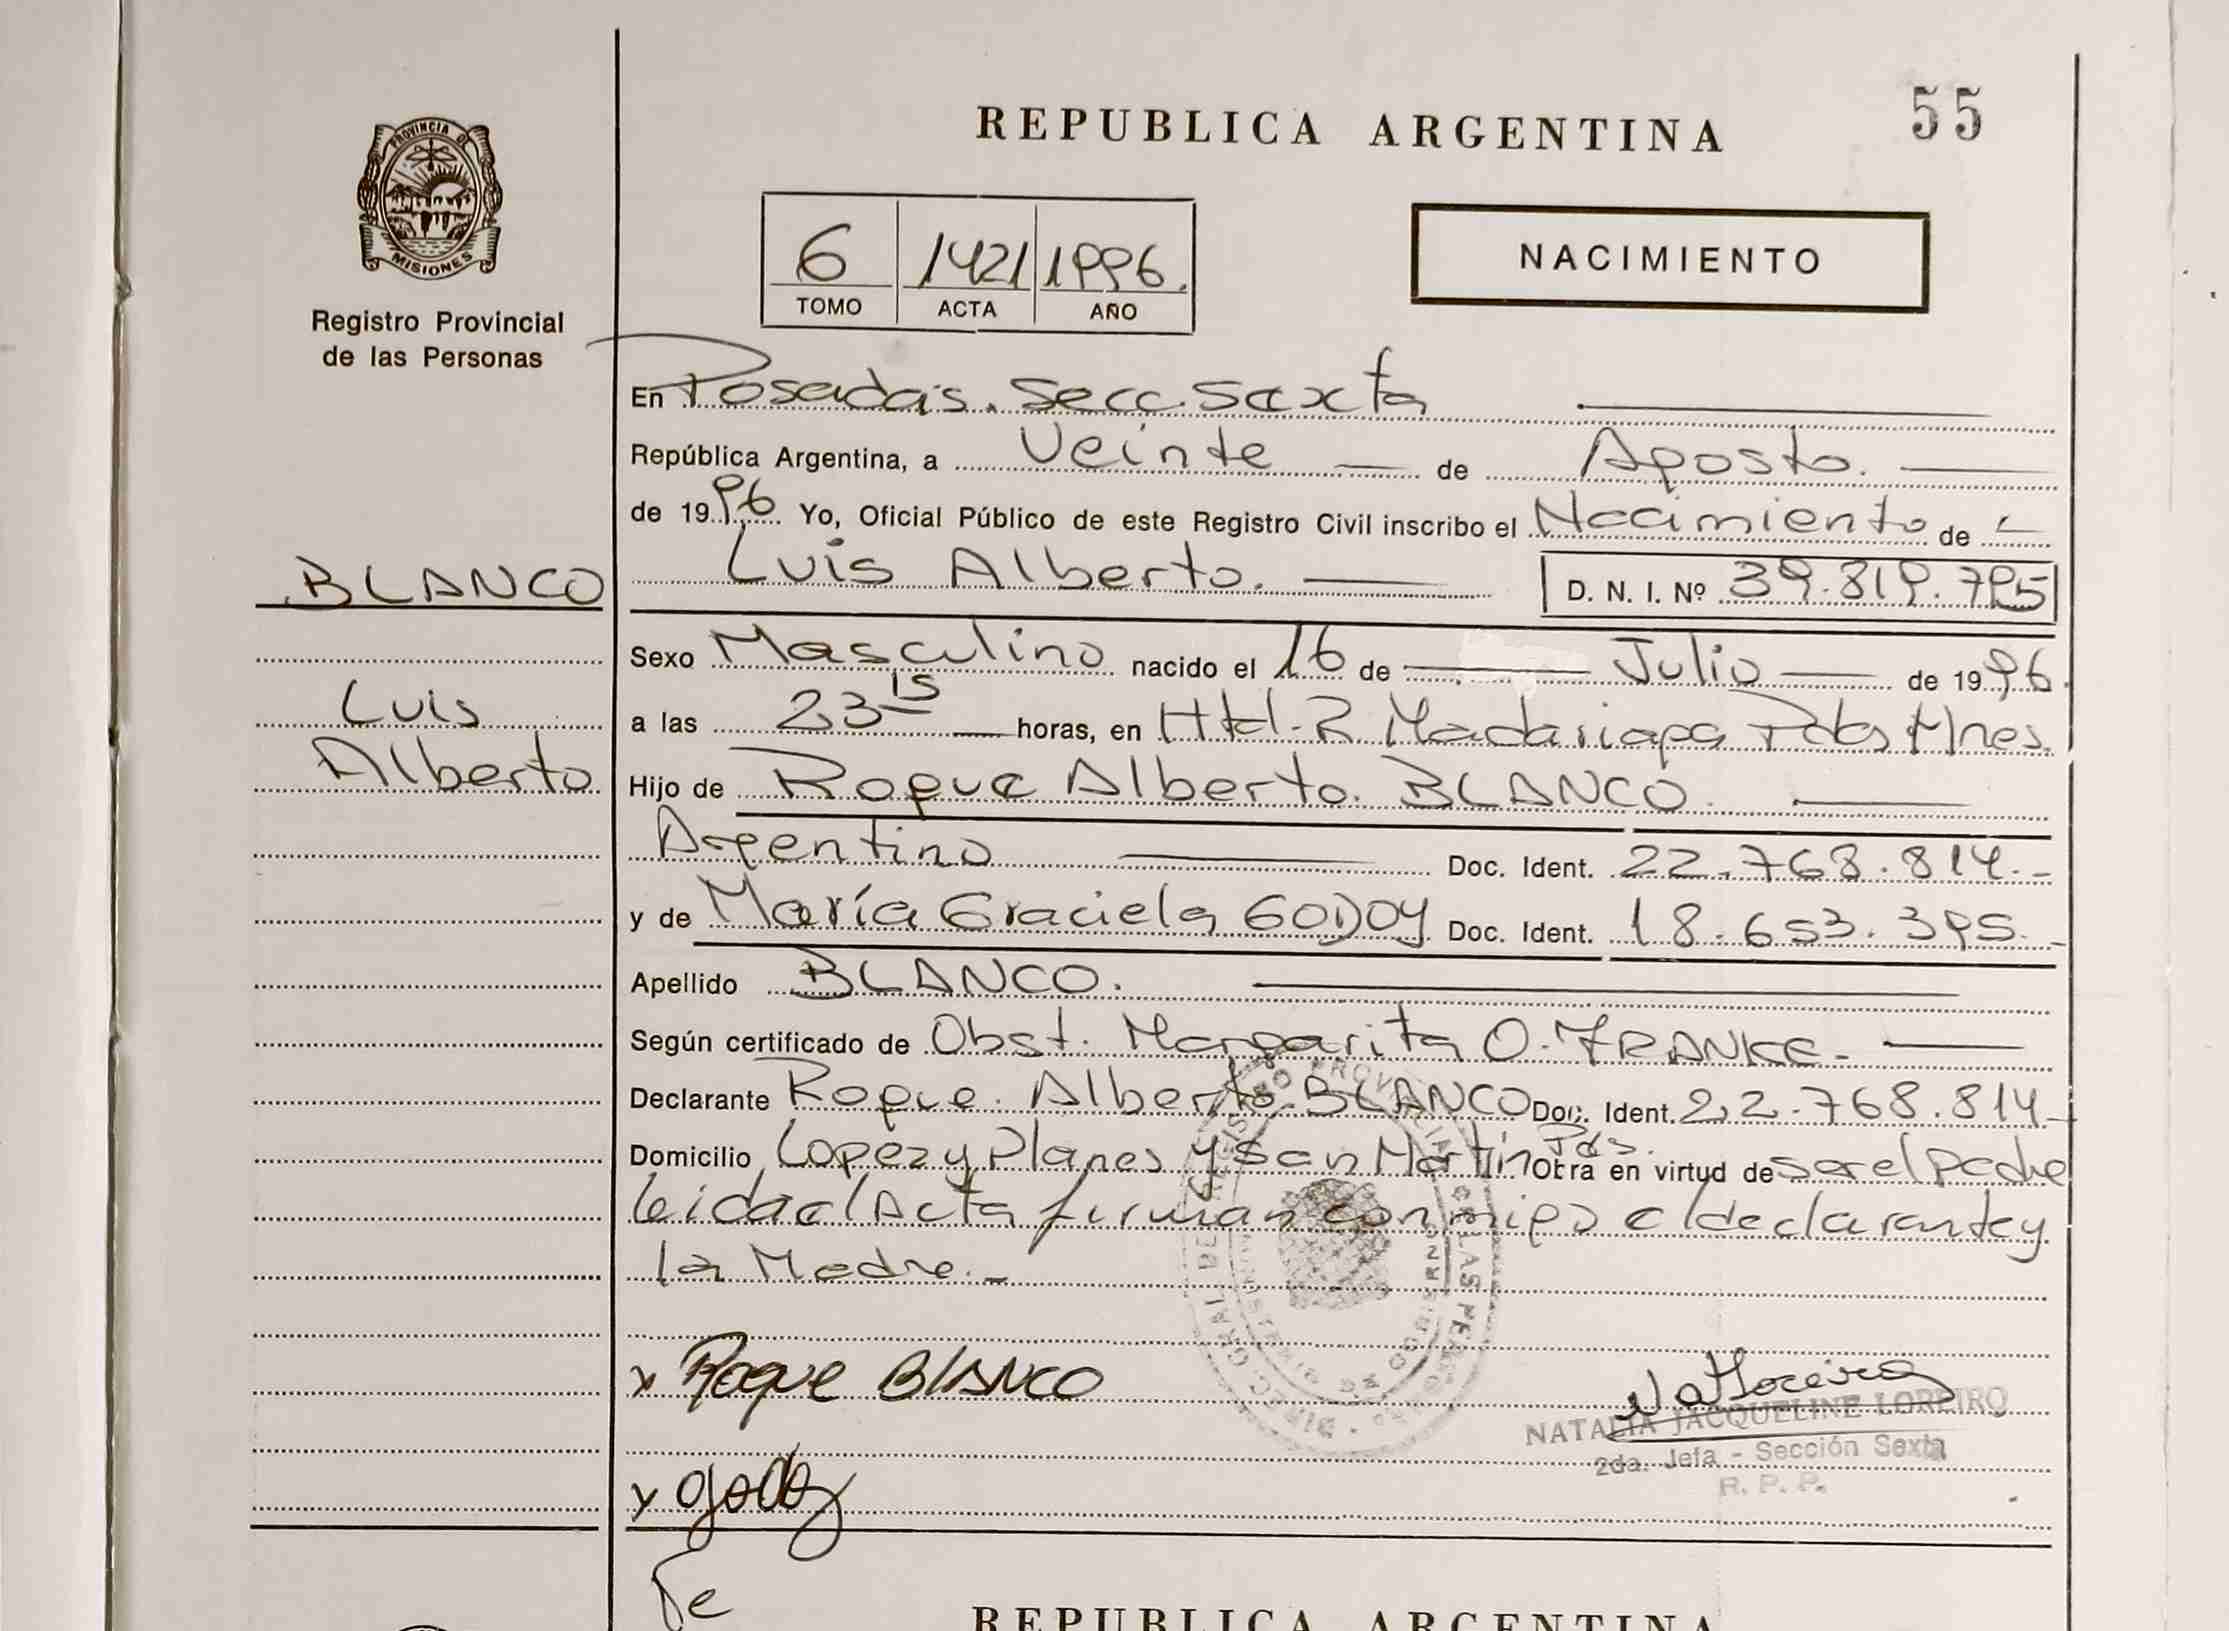 55
REPUBLICA ARGENTINA
PROVINCIA DE
MISIONES
Registro Provincial
de las Personas
6 1421 1996.
TOMO ACTA AÑO
NACIMIENTO
En Posadas. Secc. Sexta
República Argentina, a Veinte de Agosto.
de 1996 Yo, Oficial Público de este Registro Civil inscribo el Nacimiento de
BLANCO
Luis Alberto. D. N. I. Nº 39.819.795
Sexo Masculino nacido el 16 de Julio de 1996.
Luis
Alberto
a las 23 15 horas, en Htal. R. Madariaga Pdas Mnes.
Hijo de Roque Alberto. BLANCO.
Argentino Doc. Ident. 22.768.814.-
y de María Graciela GODOY Doc. Ident. 18.653.395.-
Apellido BLANCO.
Según certificado de Obst. Margarita O. FRANKE.
Declarante Roque Alberto BLANCO Doc. Ident. 22.768.814
Domicilio Lopez y Planes y San Martin Pds. Otra en virtud de ser el Padre
leida el Acta firman conmigo el declarante y
la Madre.-
x Roque BLANCO
NATALIA JACQUELINE LOREIRO
2da. Jefa - Sección Sexta
R. P. P.
REPUBLICA ARGENTINA